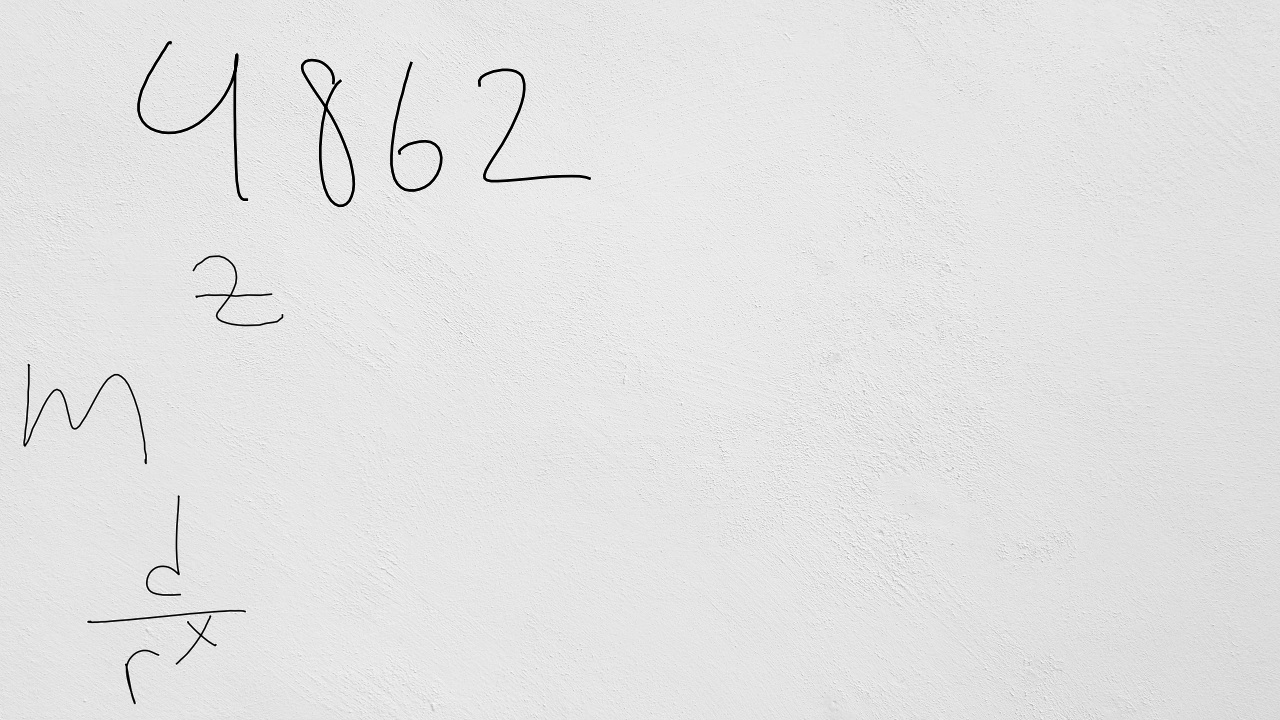 4862
z
m
d
r^x